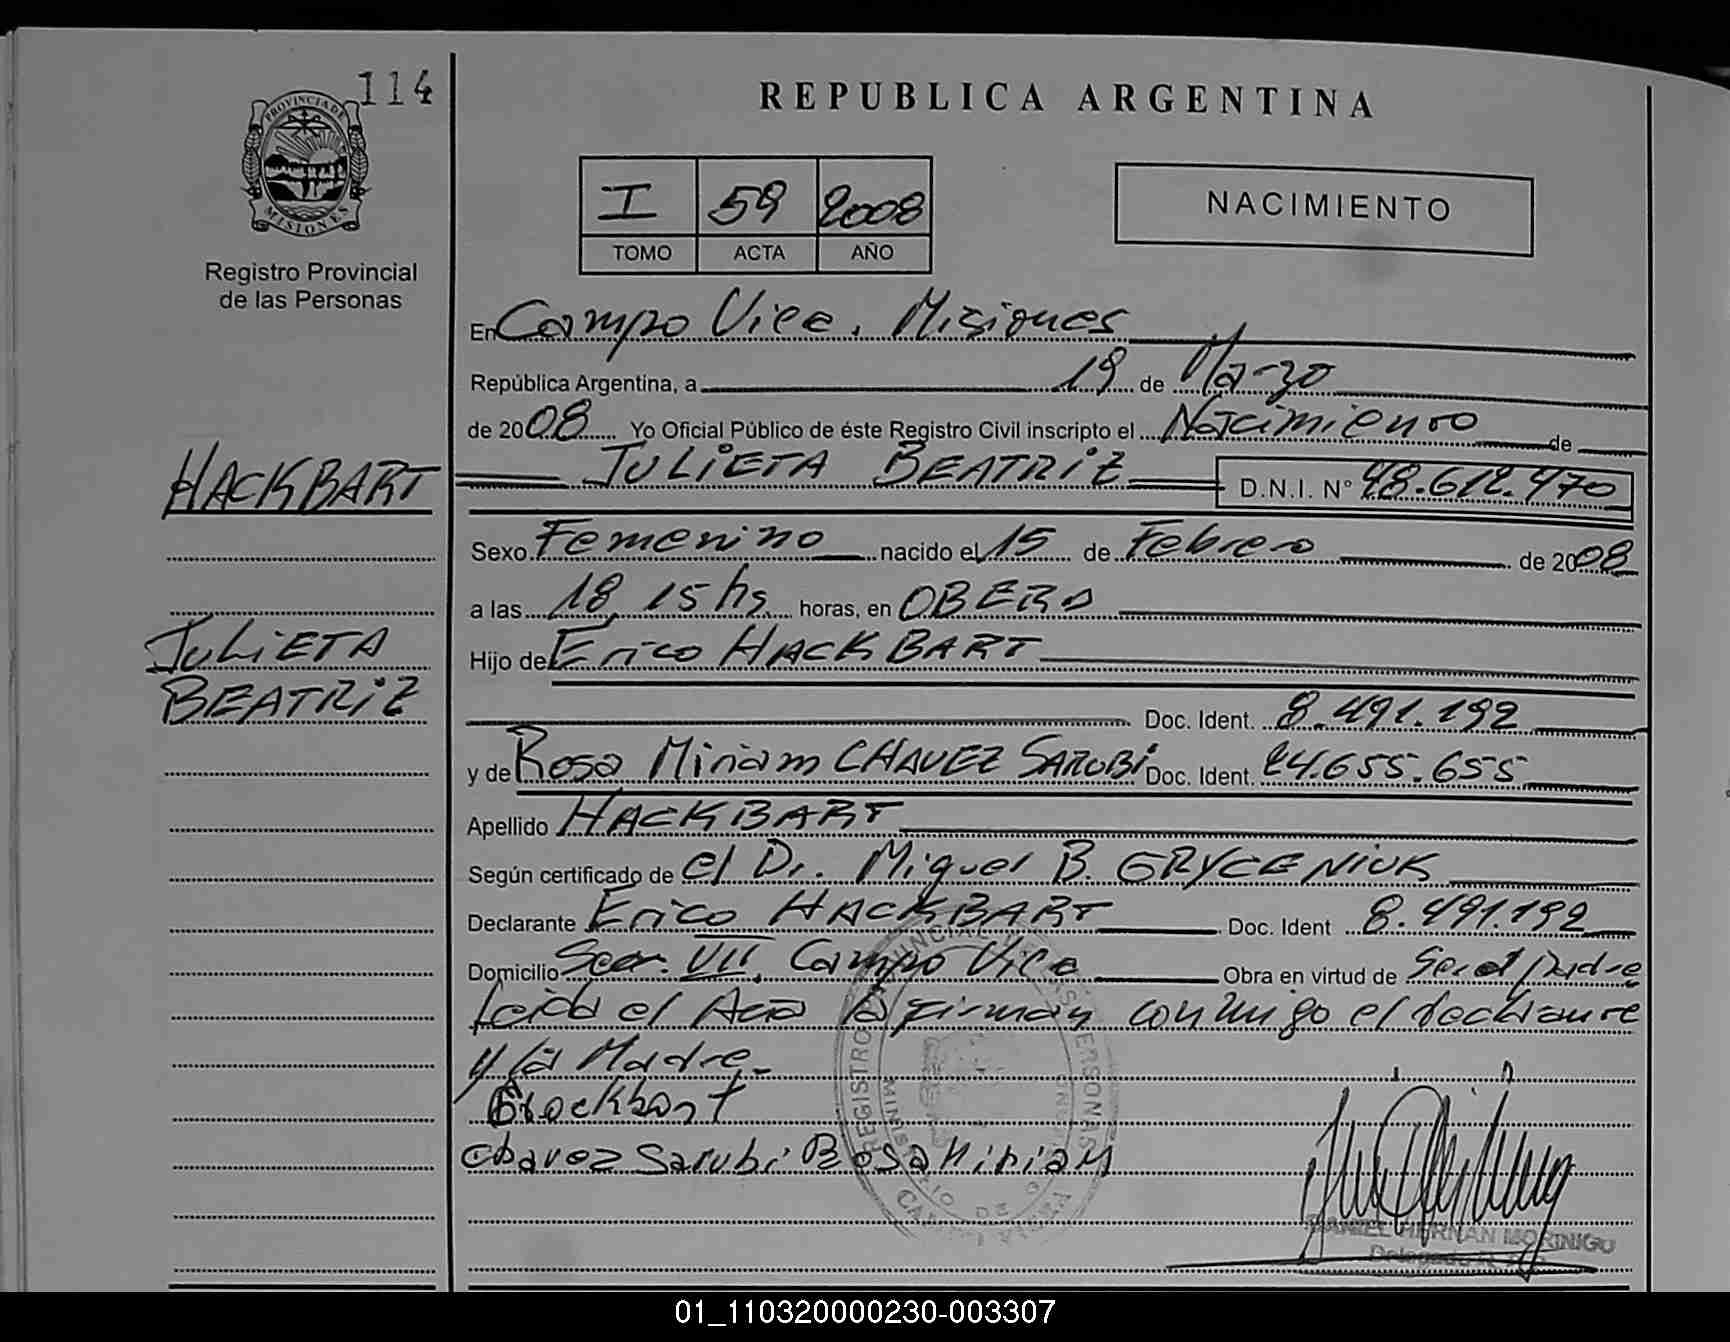 114
REPUBLICA ARGENTINA
PROVINCIA DE
MISIONES
Registro Provincial
de las Personas
I 59 2008
TOMO ACTA AÑO
NACIMIENTO
En Campo Viera. Misiones
República Argentina, a 19 de Marzo
de 2008 Yo Oficial Público de éste Registro Civil inscripto el Nacimiento de
HACKBART
JULIETA BEATRIZ D.N.I. Nº 48.612.470
Sexo Femenino nacido el 15 de Febrero de 2008
a las 18,15 hs horas, en OBERA
JULIETA
BEATRIZ
Hijo de Erico HACKBART
Doc. Ident. 8.491.192
y de Rosa Miriam CHAVEZ SARUBI Doc. Ident. 24.655.655
Apellido HACKBART
Según certificado de el Dr. Miguel B. GRYCENIUK
Declarante Erico HACKBART Doc. Ident 8.491.192
Domicilio Secc. VII. Campo Viera Obra en virtud de Ser el padre
Leida el Acta la firman conmigo el declarante
y la Madre.-
Chavez Sarubi Rosa Miriam
REGISTRO PROVINCIAL DE LAS PERSONAS
MINISTERIO DE
CAMPO VIERA
DANIEL HERNAN MORINIGO
Delegado R.P.P.
01_110320000230-003307